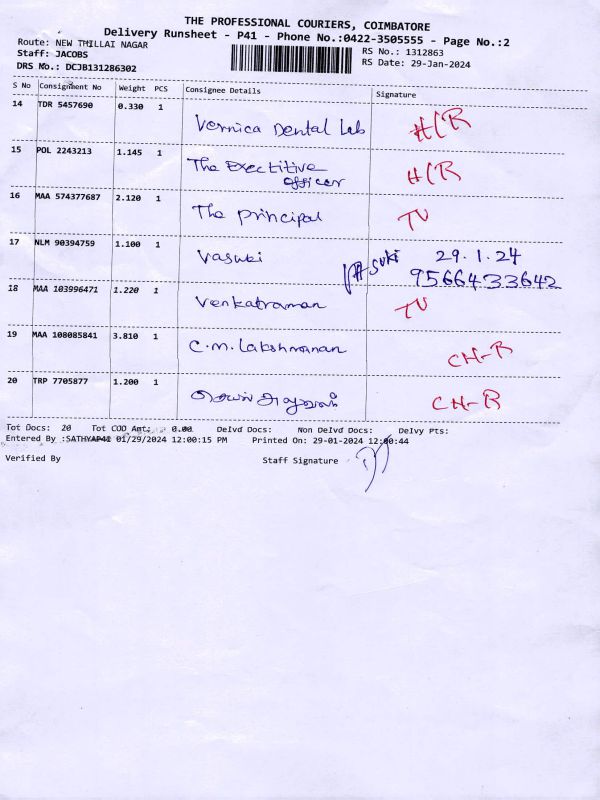 THE PROFESSIONAL COURIERS, COIMBATORE
Delivery Runsheet - P41 - Phone No.:0422-3505555 - Page No.:2
Route: NEW THILLAI NAGAR
RS No.: 1312863
Staff: JACOBS
RS Date: 29-Jan-2024
DRS No.: DCJB131286302
S No Consignment No Weight PCS Consignee Details Signature
14 TDR 5457690 0.330 1
Vernica Dental Lab H/R
15 POL 2243213 1.145 1
The Exectitive H/R
officer
16 MAA 574377687 2.120 1
The principal TU
17 NLM 90394759 1.100 1
Vasuki Vasuki 29.1.24
9566433642
18 MAA 103996471 1.220 1
Venkatraman TU
19 MAA 108085841 3.810 1
C.M. Lakshmanan CH-R
20 TRP 7705877 1.200 1
CH-R
Tot Docs: 20 Tot COD Amt: 0.00 Delvd Docs: Non Delvd Docs: Delvy Pts:
Entered By :SATHYAP41 01/29/2024 12:00:15 PM Printed On: 29-01-2024 12:00:44
Verified By Staff Signature